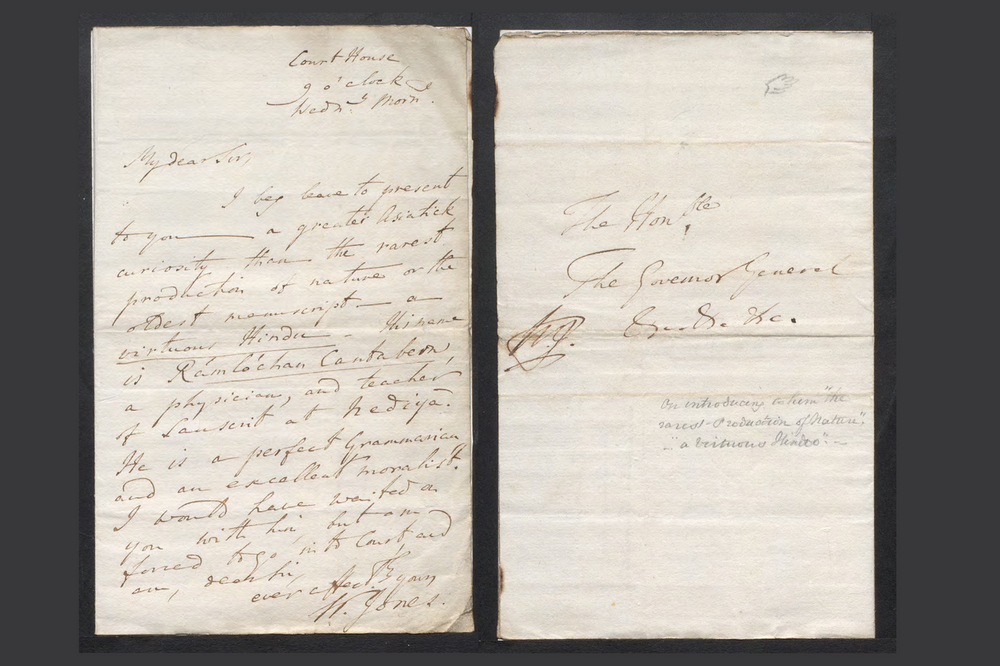 Court House
9 o'clock
Wedn.y Morn.
My dear Sir,
I beg leave to present
to you — a greater Asiatick
curiosity than the rarest
production of nature or the
oldest manuscript — a
virtuous Hindu. His name
is Rámlóchan Cantaberna,
a physician, and teacher
of Sanscrit at Nediya.
He is a perfect Grammarian
and an excellent moralist.
I would have waited on
you with him, but am
forced to go into Court and
am, dear Sir,
ever affect.ly yours
W. Jones.
The Hon.ble
The Governor General
&c. &c. &c.
W.J.
On introducing to him "the
rarest Production of Nature",
"a virtuous Hindoo".—